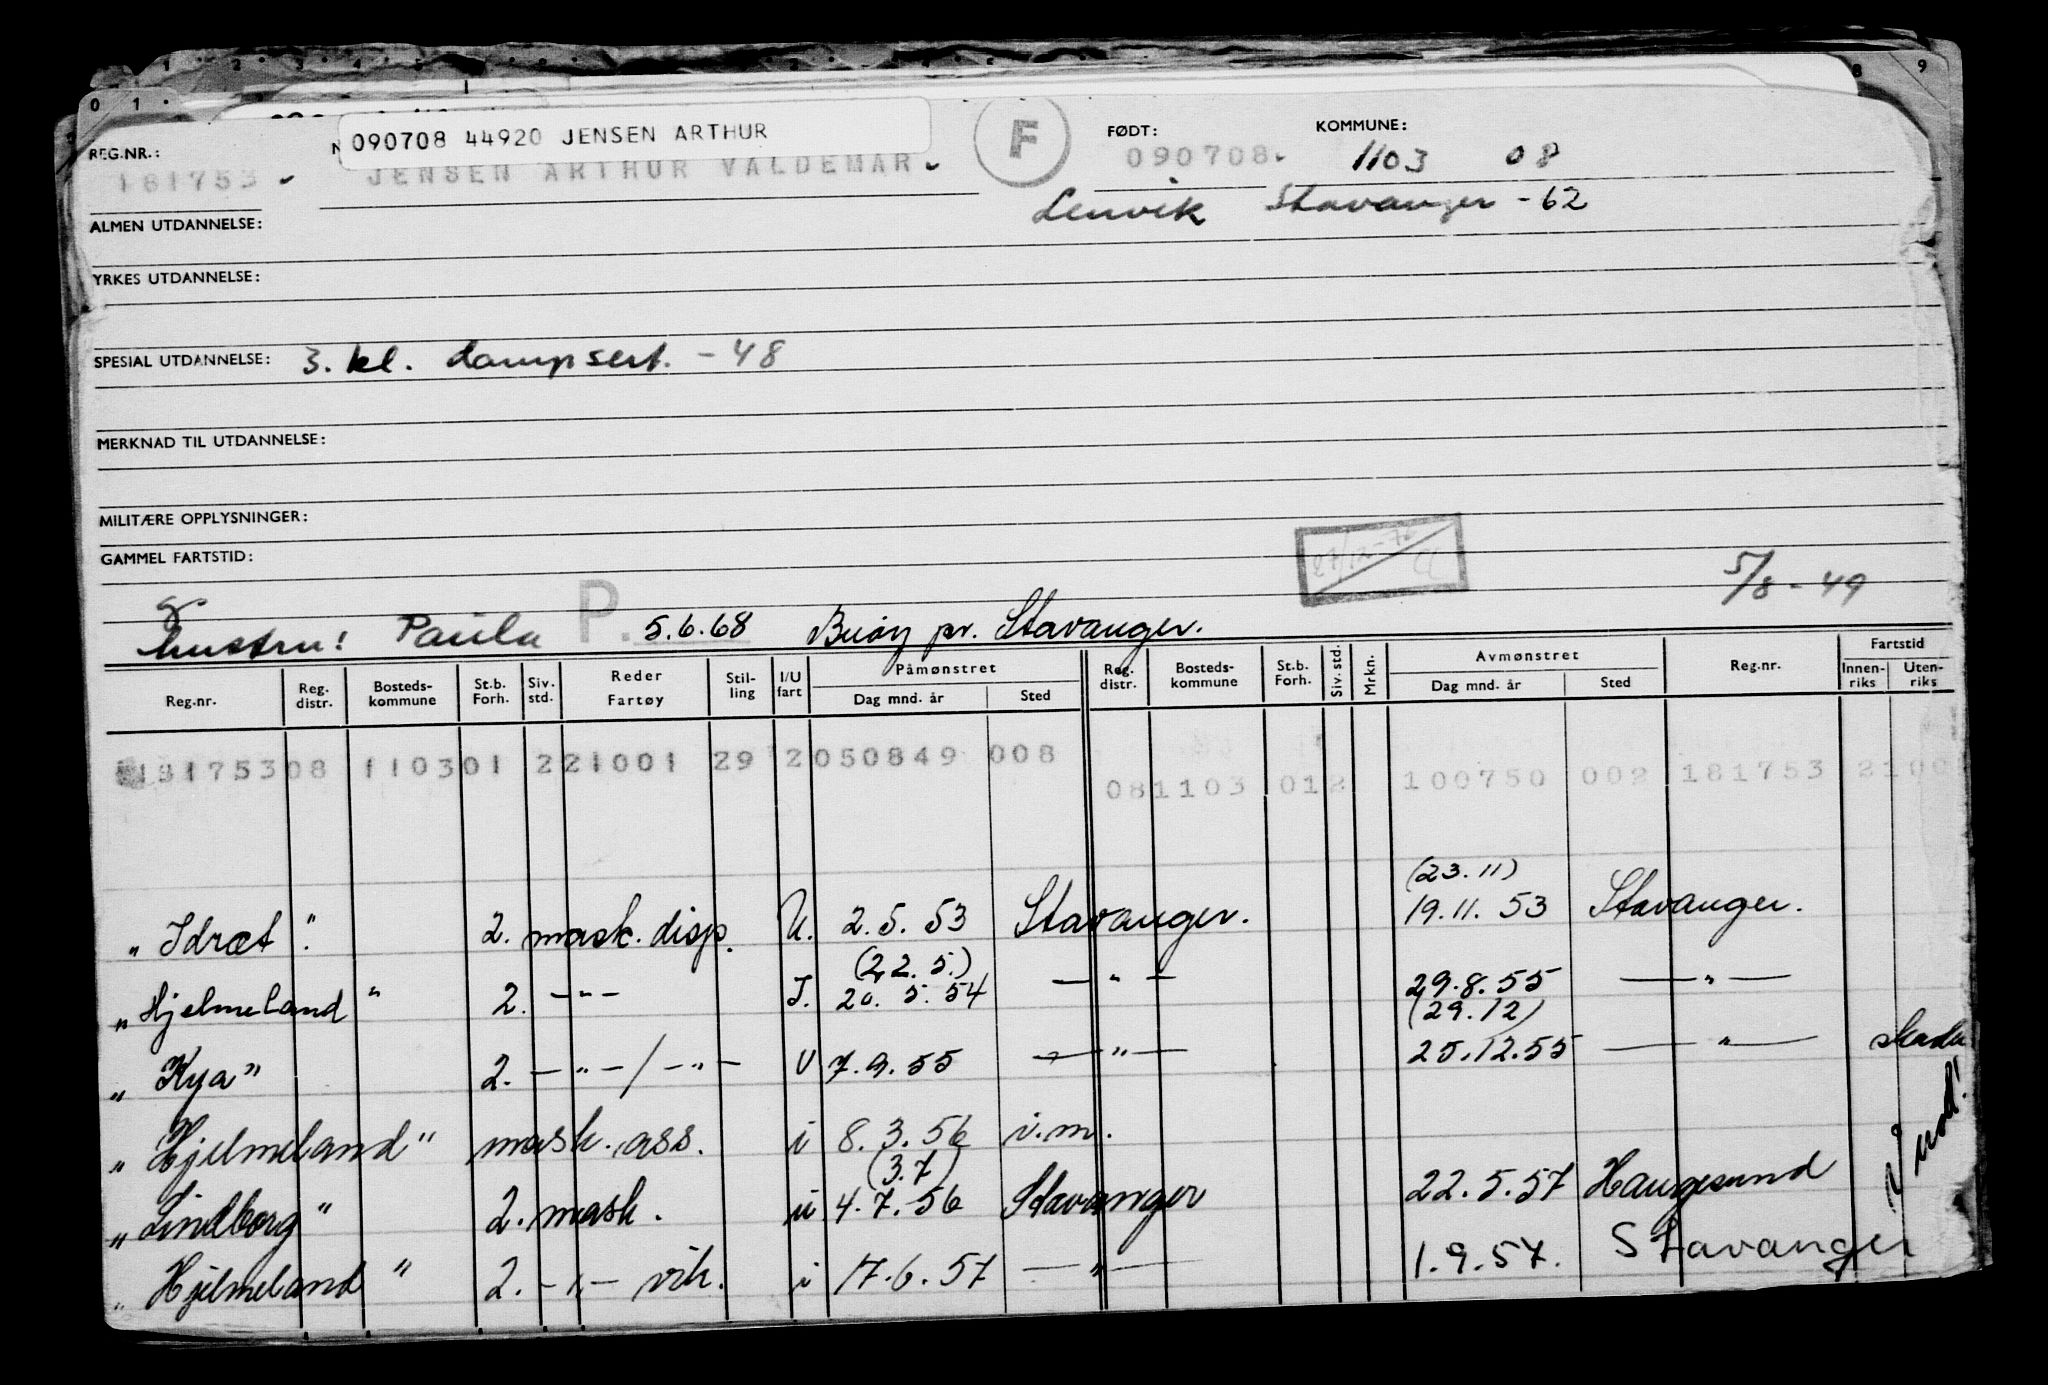 090708 44920 JENSEN ARTHUR
REG.NR.: FØDT: KOMMUNE:
181753 JENSEN ARTHUR VALDEMAR F 090708 1103 08
Lenvik Stavanger - 62
ALMEN UTDANNELSE:
YRKES UTDANNELSE:
SPESIAL UTDANNELSE: 3. kl. dampsert. - 48
MERKNAD TIL UTDANNELSE:
MILITÆRE OPPLYSNINGER:
GAMMEL FARTSTID:
5/8 - 49
hustru: Paula P. 5.6.68 Buøy pr. Stavanger.
Reg.nr. Reg. distr. Bosteds-kommune St.b. Forh. Siv. std. Reder Fartøy Stil-ling I/U fart Påmønstret Dag mnd. år Sted Reg. distr. Bosteds-kommune St.b. Forh. Siv. std. Mrkn. Avmønstret Dag mnd. år Sted Reg.nr. Fartstid Innen-riks Uten-riks
18175308 110301 221001 29 2050849 008 081103 012 100750 002 181753 2100
(23.11)
„ Idræt " 2. mask. disp. U. 2.5.53 Stavanger. 19.11.53 Stavanger.
(22.5.)
„ Hjelmeland " 2. — " — I. 20.5.54 — " — 29.8.55 — " —
(29.12)
„ Kya " 2. — " — / — " — U 7.9.55 — " — 25.12.55 — " —
„ Hjelmeland " mask. ass. i 8.3.56 i.m.
(3.7)
„ Lindborg " 2. mask. u 4.7.56 Stavanger 22.5.57 Haugesund
„ Hjelmeland " 2. — " — vik. i 17.6.57 — " — 1.9.57. Stavanger